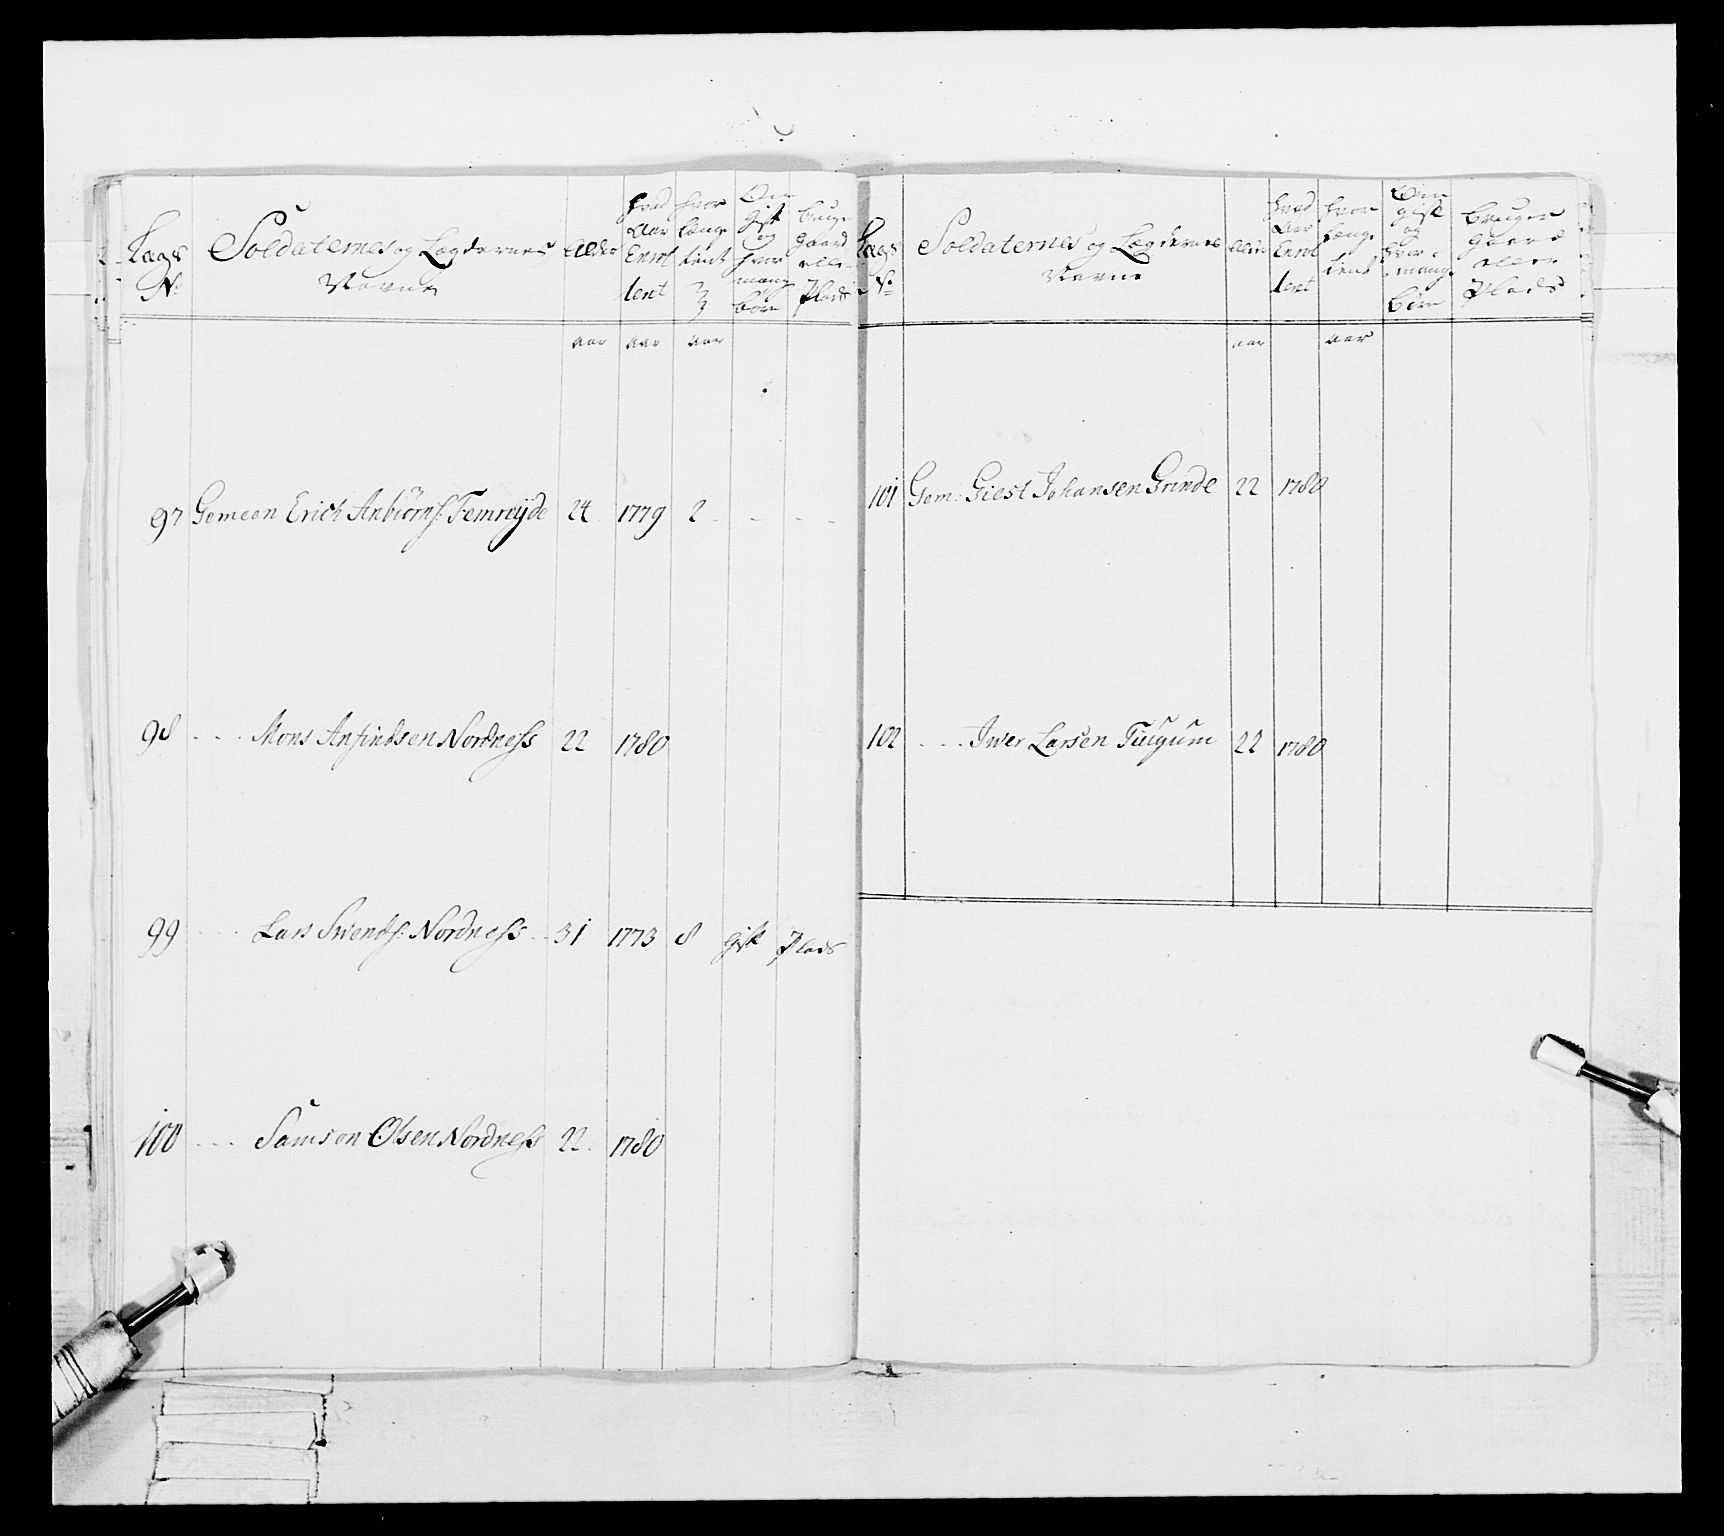 Lægs No
Soldaternes og Lægdernes Navne
Alder
hvad Aar Enrolleret
hvor længe tient
Om gift og hvor mange børn
bruger gaard eller Plads
aar aar aar
97 Gemeen Erich Anbiörns: Femröyde 24 1779 2 - - - -
98 - - - Mons Anfindsen Nordness 22 1780
99 - - - Lars Swends: Nordness 31 1773 8 gift Plads
100 - - - Samson Olsen Nordness 22 1780
Lægs No
Soldaternes og Lægdernes Navne
Alder
hvad Aar Enrolleret
hvor længe tient
Om gift og hvor mange børn
bruger gaard eller Plads
aar aar
101 Gem: Giest Johansen Grinde 22 1780
102 - - - Iwer Larsen Tuŭgum 22 1780